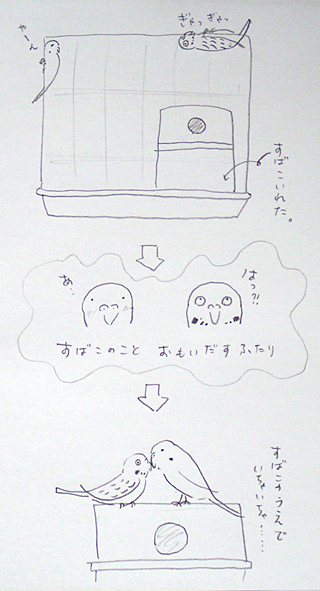 やーん
ぎゃっぎゃっ
すばこいれた。
あ…
はっ?!
すばこのこと おもいだすふたり
すばこのうえで
いちゃいちゃ……